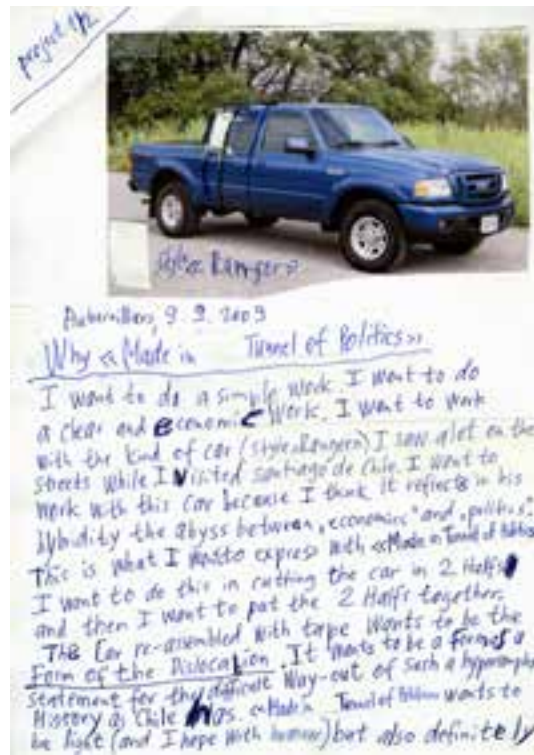 project 1/2
style « Ranger »
Aubervilliers, 9. 9. 2009
Why « Made in Tunnel of Politics »
I want to do a simple work. I want to do
a clear and economic work. I want to work
with the kind of car (style Rangers) I saw alot on the
streets while I visited santiago de Chile. I want to
work with this car because I think it reflects in his
hybidity the abyss between "economics" and "politics".
This is what I want to express with « Made in Tunnel of Politics »
I want to do this in cutting the car in 2 Halfs
and then I want to put the 2 Halfs together.
The Car re-assembled with tape wants to be the
Form of the Dislocation. It wants to be a form of a
statement for the difficult Way-out of such a
History as Chile has. « Made in Tunnel of Politics » wants to
be light (and I hope with humour) but also definitely